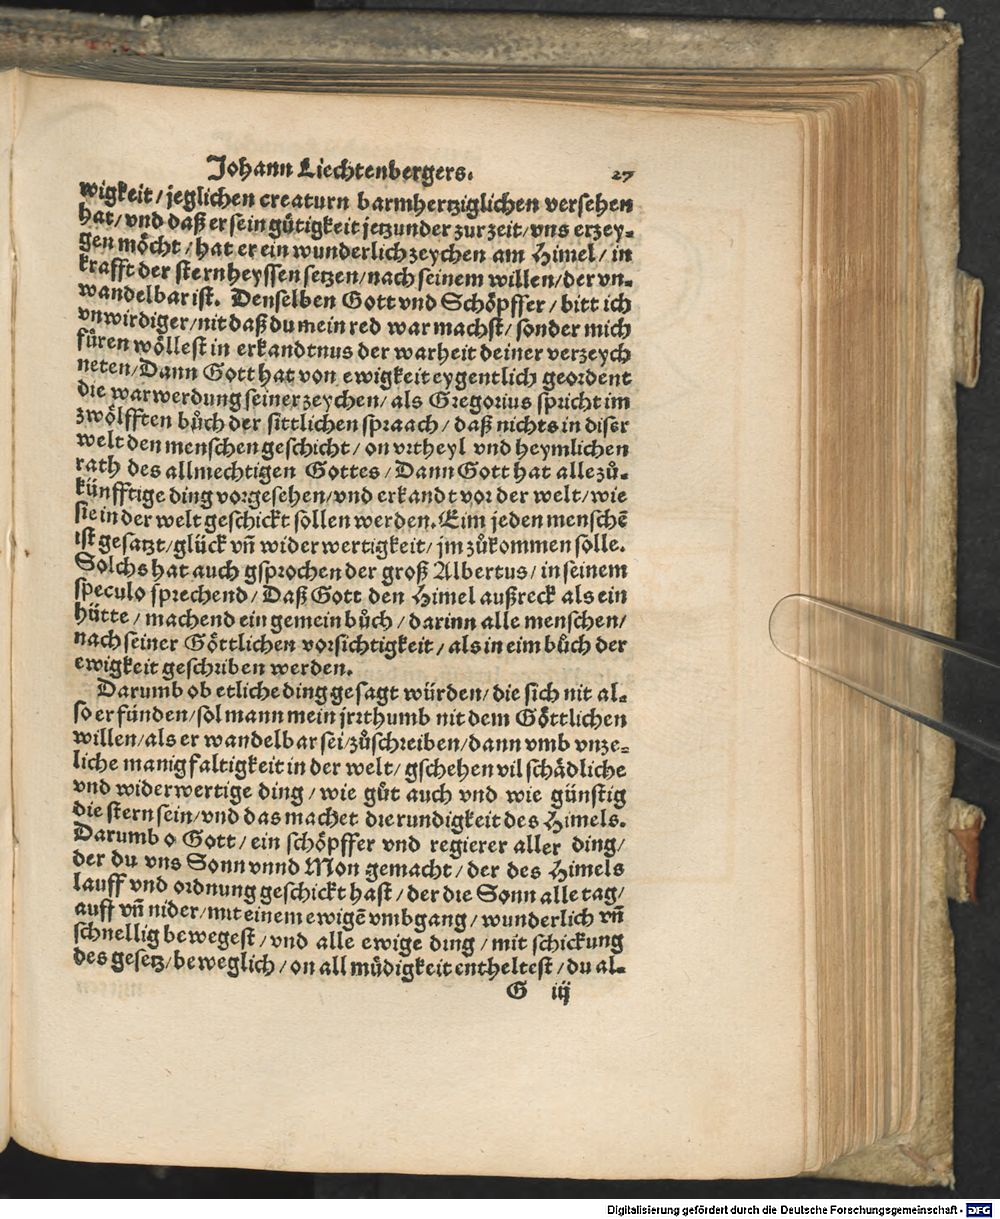 Johann Liechtenbergers. 27
wigkeit / jeglichen creaturn barmhertziglichen versehen
hat / vnd daß er sein gůtigkeit jetzunder zur zeit / vns erzey-
gen möcht / hat er ein wunderlich zeychen am Himel / in
krafft der stern heyssen setzen / nach seinem willen / der vn-
wandelbar ist. Denselben Gott vnd Schöpffer / bitt ich
vnwirdiger / nit daß du mein red war machst / sonder mich
füren wöllest in erkandtnus der warheit deiner verzeych
neten / Dann Gott hat von ewigkeit eygentlich geordent
die warwerdung seiner zeychen / als Gregorius spricht im
zwölfften bůch der sittlichen spraach / daß nichts in diser
welt den menschen geschicht / on vrtheyl vnd heymlichen
rath des allmechtigen Gottes / Dann Gott hat alle zů-
künfftige ding vorgesehen / vnd erkandt vor der welt / wie
sie in der welt geschickt sollen werden. Eim jeden menschē
ist gesatzt / glück vñ widerwertigkeit / jm zůkommen solle.
Solchs hat auch gsprochen der groß Albertus / in seinem
speculo sprechend / Daß Gott den Himel außreck als ein
hütte / machend ein gemein bůch / darinn alle menschen /
nach seiner Göttlichen vorsichtigkeit / als in eim bůch der
ewigkeit geschriben werden.
Darumb ob etliche ding gesagt würden / die sich nit al-
so erfünden / sol mann mein jrrthumb nit dem Göttlichen
willen / als er wandelbar sei / zůschreiben / dann vmb vnze-
liche manigfaltigkeit in der welt / gschehen vil schädliche
vnd widerwertige ding / wie gůt auch vnd wie günstig
die stern sein / vnd das machet die rundigkeit des Himels.
Darumb o Gott / ein schöpffer vnd regierer aller ding /
der du vns Sonn vnnd Mon gemacht / der des Himels
lauff vnd ordnung geschickt hast / der die Sonn alle tag /
auff vñ nider / mit einem ewigē vmbgang / wunderlich vñ
schnellig bewegest / vnd alle ewige ding / mit schickung
des gesetz / beweglich / on all müdigkeit entheltest / du al-
G iij
Digitalisierung gefördert durch die Deutsche Forschungsgemeinschaft - DFG